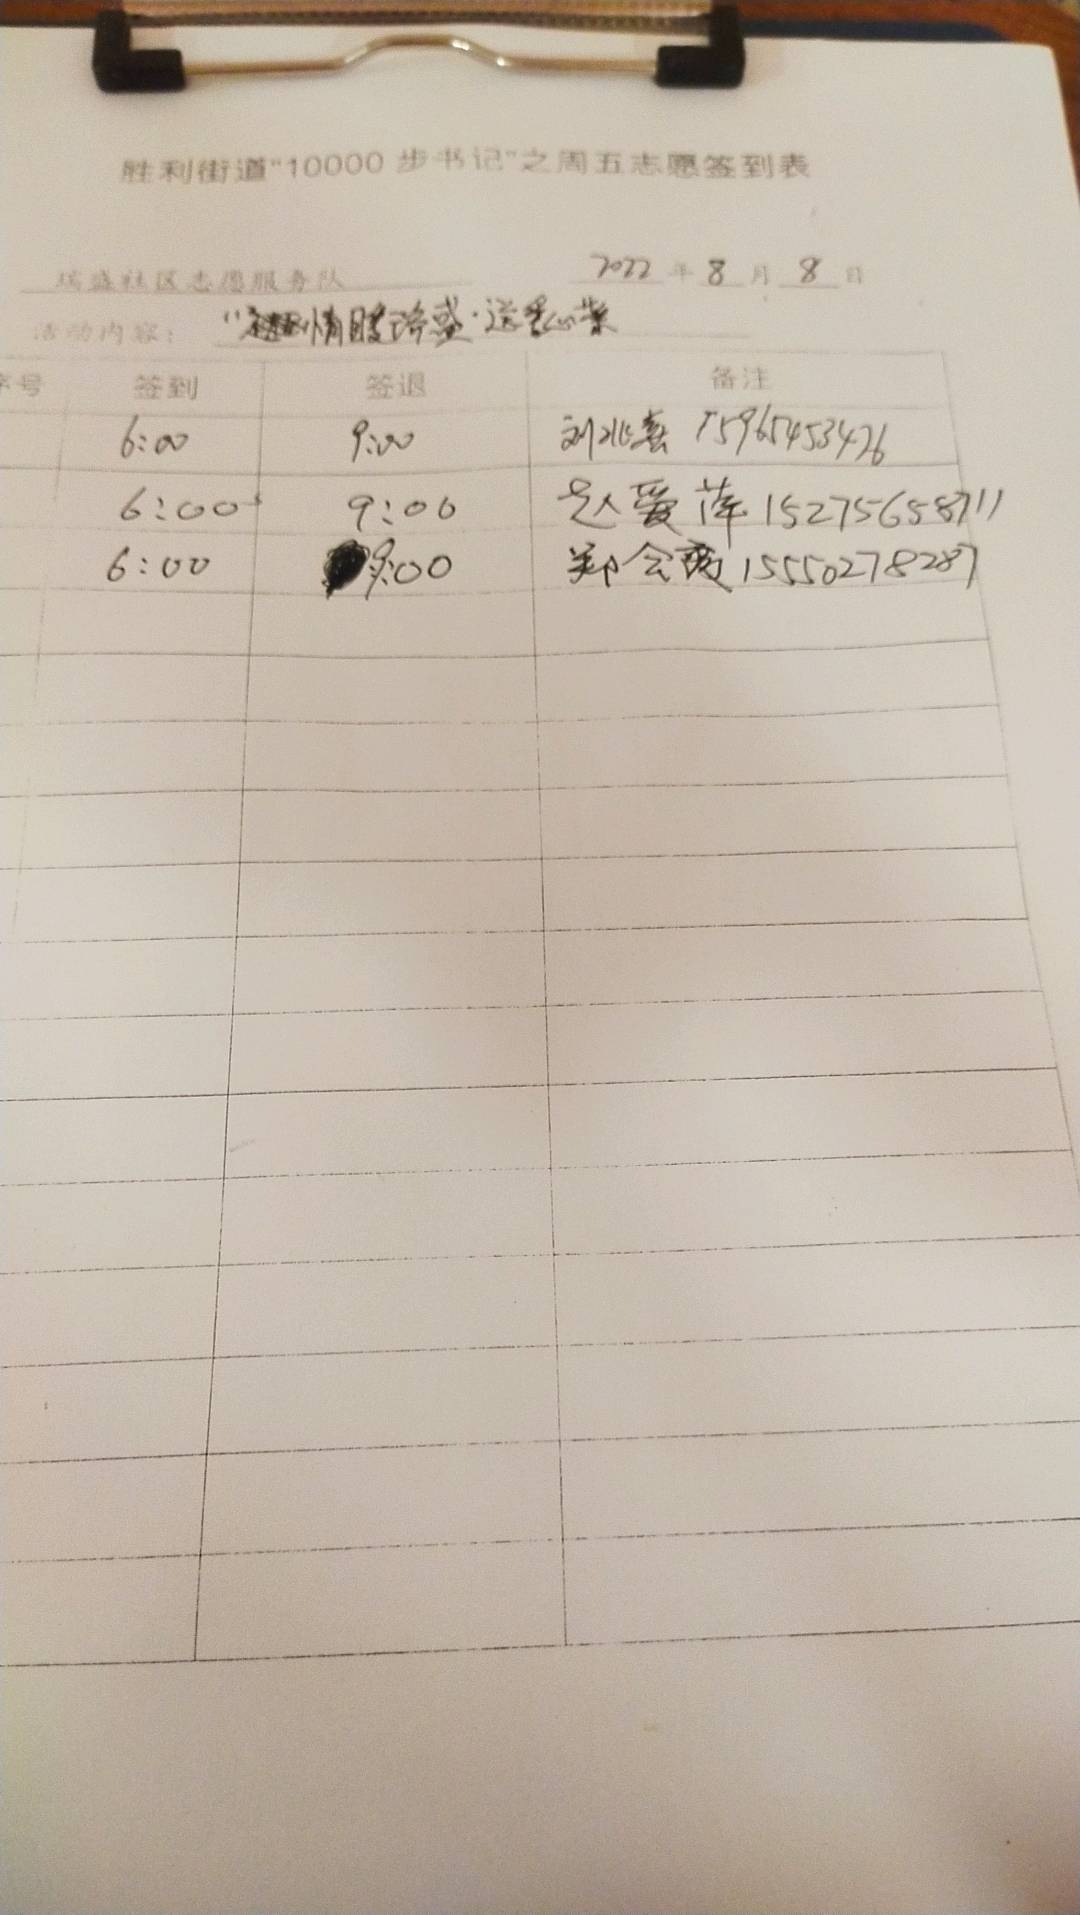 胜利街道“10000 步书记”之周五志愿签到表
瑞盛社区志愿服务队 2022 年 8 月 8 日
活动内容： “情暖瑞盛·送爱心
序号 签到 签退 备注
6:00 9:00 刘兆喜 15965453426
6:00 9:00 赵爱萍 15275658711
6:00 9:00 郑会霞 15550278287